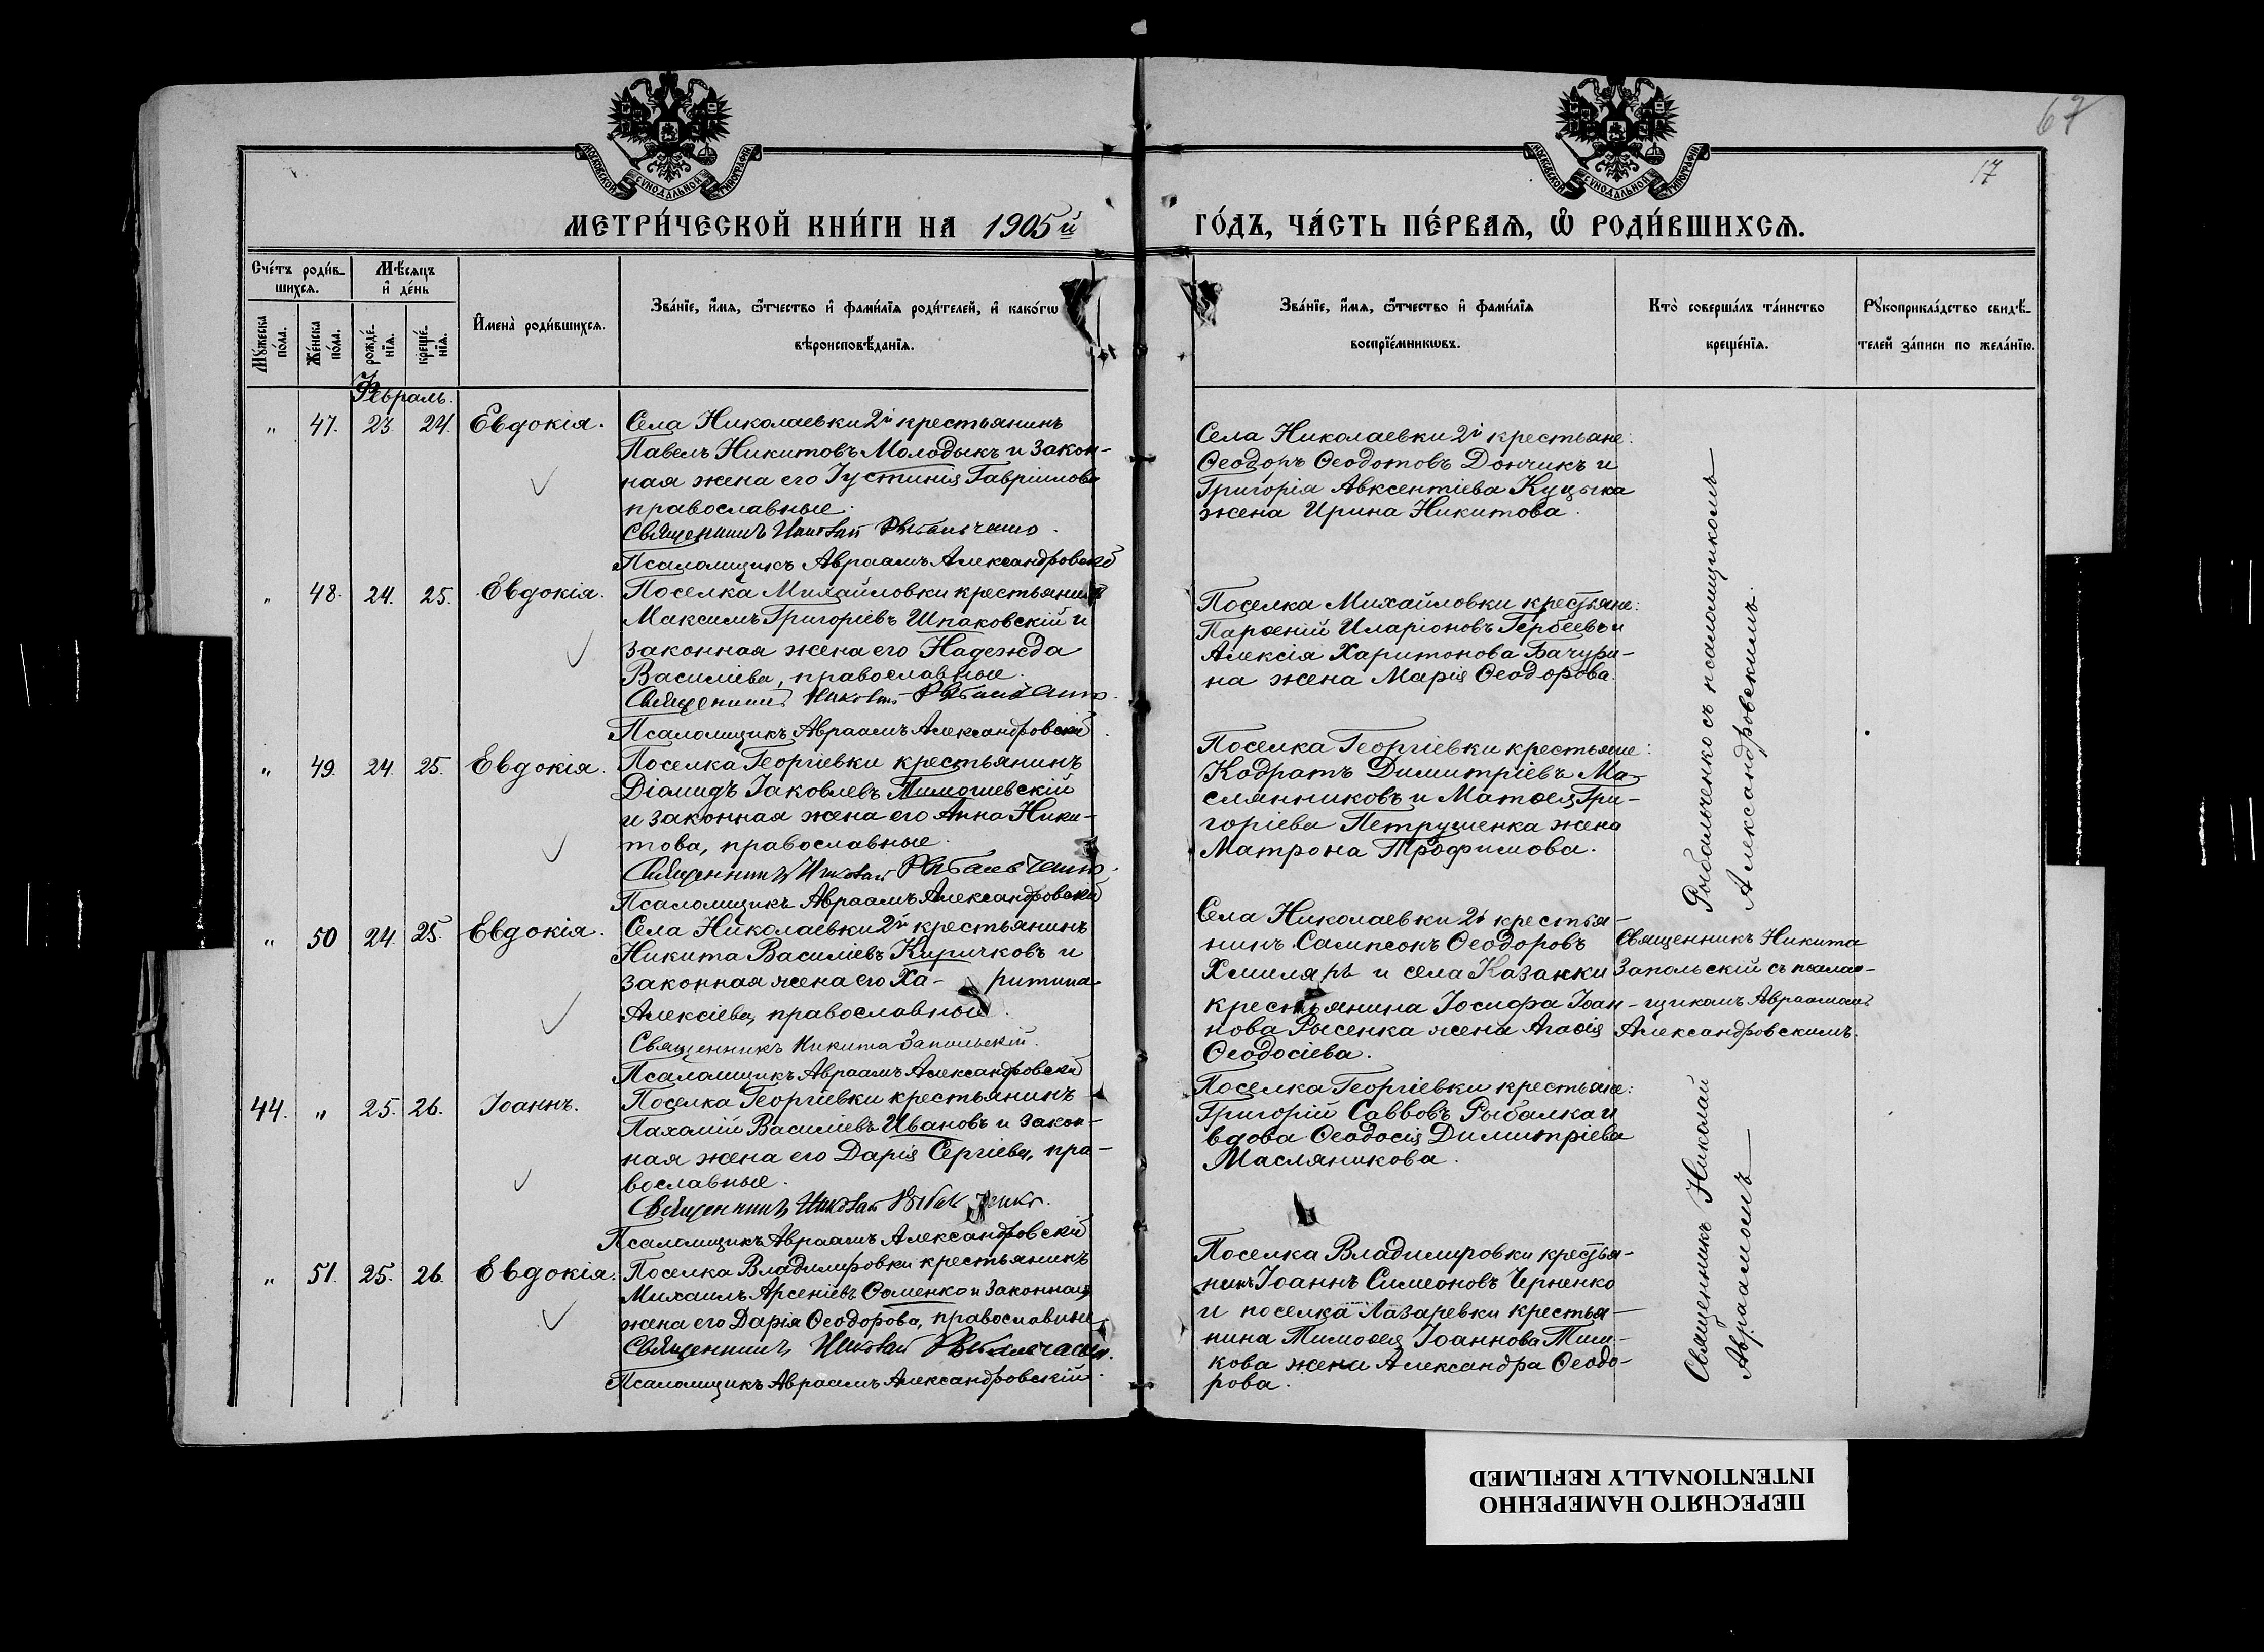 67
17
МОСКОВСКОЙ СѴНОДАЛЬНОЙ ТИПОГРАФІИ
МОСКОВСКОЙ СѴНОДАЛЬНОЙ ТИПОГРАФІИ
МЕТРИ́ЧЕСКОЙ КНИ́ГИ НА 1905й
ГО́ДЪ, ЧА́СТЬ ПЕ́РВАѦ, Ѡ҆ РОДИ́ВШИХСѦ.
Сче́тъ роди́в-
шихсѧ.
Мѣ́сѧцъ
и҆ де́нь
Мꙋ́жеска
по́ла.
Же́нска
по́ла.
рожде́-
нїѧ.
креще́-
нїѧ.
И҆мена̀ роди́вшихсѧ.
Зва́нїе, и҆́мѧ, ѻ҆́тчество и҆ фами́лїѧ роди́телей, и҆ како́гѡ
вѣроисповѣ́данїѧ.
Зва́нїе, и҆́мѧ, ѻ҆́тчество и҆ фами́лїѧ
воспрїе́мникѡвъ.
Кто̀ соверша́лъ та́инство
креще́нїѧ.
Рꙋкоприкла́дство свидѣ́-
телей за́писи по жела́нїю.
Февраль.
" 47. 23. 24. Евдокія.
Села Николаевки 2й крестьянинъ
Павелъ Никитовъ Молодыкъ и закон-
ная жена его Іустинія Гавріилова
православные.
Священникъ Николай Рыбальченко.
Псаломщикъ Авраамъ Александровскій
Села Николаевки 2й крестьане:
Ѳеодоръ Ѳеодотовъ Дончикъ и
Григорія Авксентіева Куцыка
жена Ирина Никитова.
" 48. 24. 25. Евдокія.
Поселка Михайловки крестьянинъ
Максимъ Григоріевъ Шпаковскій и
законная жена его Надежда
Василіева, православные.
Священникъ Николай Рыбальченко.
Псаломщикъ Авраамъ Александровскій.
Поселка Михайловки крестьяне:
Парѳеній Иларіоновъ Гербеевъ и
Алексія Харитонова Бачури-
на жена Марія Ѳеодорова.
" 49. 24. 25. Евдокія.
Поселка Георгіевки крестьянинъ
Діамидъ Іаковлевъ Тимошевскій
и законная жена его Анна Ники-
това, православные.
Священникъ Николай Рыбальченко.
Псаломщикъ Авраамъ Александровскій
Поселка Георгіевки крестьяне:
Кодратъ Димитріевъ Ма-
слянниковъ и Матѳея Гри-
горіева Петрушенка жена
Матрона Трофимова.
Рыбальченко съ псаломщикомъ
Александровскимъ.
" 50 24. 25. Евдокія.
Села Николаевки 2й крестьянинъ
Никита Василіевъ Киричковъ и
законная жена его Ха- ритина
Алексіева, православные.
Священникъ Никита Запольскій.
Псаломщикъ Авраамъ Александровскій
Села Николаевки 2й крестья-
нинъ Сампсонъ Ѳеодоровъ
Хмиляръ и села Казанки
крестьянина Іосифа Іоан-
нова Рысенка жена Агаѳія
Ѳеодосіева.
Священникъ Никита
Запольскій съ псалом-
щикомъ Авраамомъ
Александровскимъ.
44. " 25. 26. Іоаннъ.
Поселка Георгіевки крестьянинъ
Пахомій Василіевъ Ивановъ и закон-
ная жена его Дарія Сергіева, пра-
вославные.
Священникъ Николай Рыбальченко.
Псаломщикъ Авраамъ Александровскій
Поселка Георгіевки крестьане:
Григорій Саввовъ Рыбалка и
вдова Ѳеодосія Димитріева
Масляникова.
" 51. 25. 26. Евдокія.
Поселка Владиміровки крестьянинъ
Михаилъ Арсеніевъ Ѳоменко и законная
жена его Дарія Ѳеодорова, православные
Священникъ Николай Рыбальченко.
Псаломщикъ Авраамъ Александровскій.
Поселка Владиміровки крестья-
нинъ Іоаннъ Симеоновъ Черненко
и поселка Лазаревки крестья-
нина Тимоѳея Іоаннова Тиш-
кова жена Александра Ѳеодо-
рова.
Священникъ Николай
Авраамомъ
ПЕРЕСНЯТО НАМЕРЕННО
INTENTIONALLY REFILMED